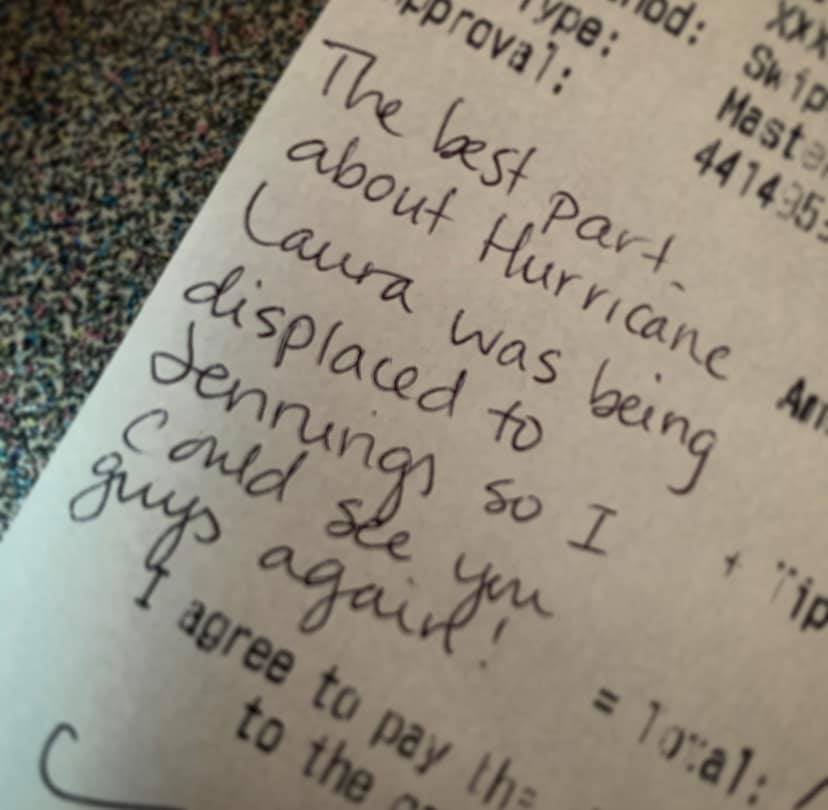 Type:
Approval:
Swip
Maste
The best part
about Hurricane
Laura was being
displaced to
Jennings so I
could see you
guys again!
+ Tip
= Total:
I agree to pay the
to the